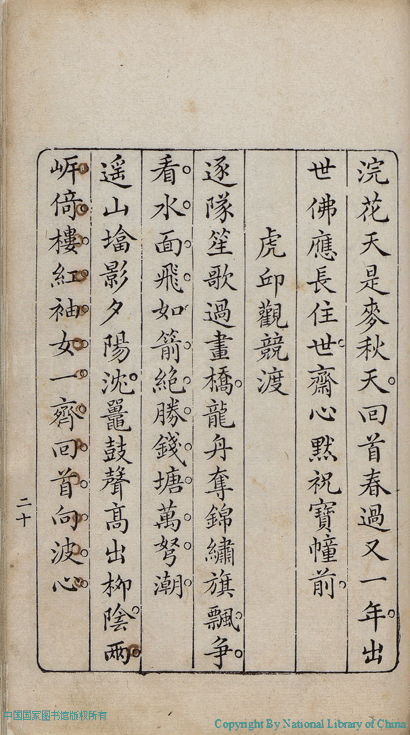 浣花天是麥秋天回首春過又一年出
世佛應長住世齋心黙祝寶幢前
虎邱觀競渡
逐隊笙歌過畫橋龍舟奪錦繡旗飄爭
看水面飛如箭絕勝錢塘萬弩潮
遥山墖影夕陽沈鼉鼓聲高出柳陰兩
㟁倚樓紅袖女一齊回首向波心
二十
中国国家图书馆版权所有
Copyright By National Library of China